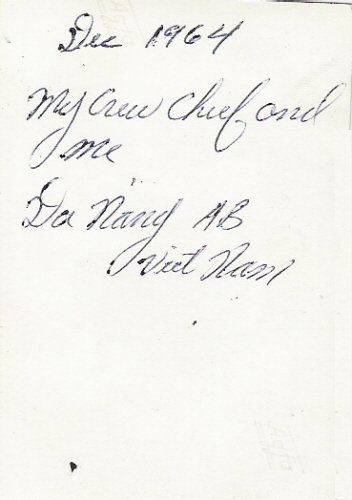 Dec 1964
My Crew Chief and
me
Da Nang AB
Viet Nam